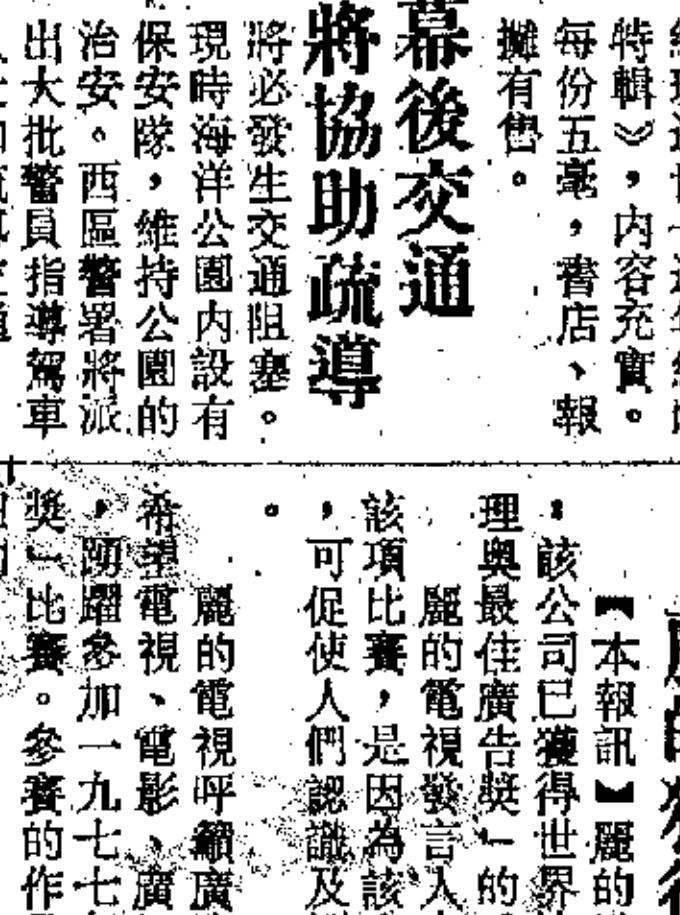 特輯》，內容充實。
每份五毫，書店、報
攤有售。
幕後交通
將協助疏導
將必發生交通阻塞。
現時海洋公園內設有
保安隊，維持公園的
治安。西區警署將派
出大批警員指導駕車
【本報訊】麗的
，該公司已獲得世界
理奧最佳廣告獎」的
麗的電視發言人
該項比賽，是因為該
，可促使人們認識及
。
麗的電視呼籲廣
希望電視、電影、廣
，踴躍參加一九七七
獎」比賽。參賽的作